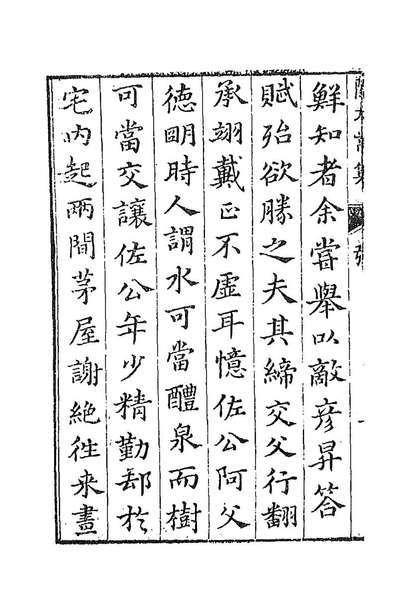 鮮知者余嘗舉以敵彦昇答
賦殆欲勝之夫其締交父行翻
承翊戴正不虛耳憶佐公阿父
德明時人謂水可當醴泉而樹
可當交讓佐公年少精勤却於
宅内起兩間茅屋謝絶徃来晝